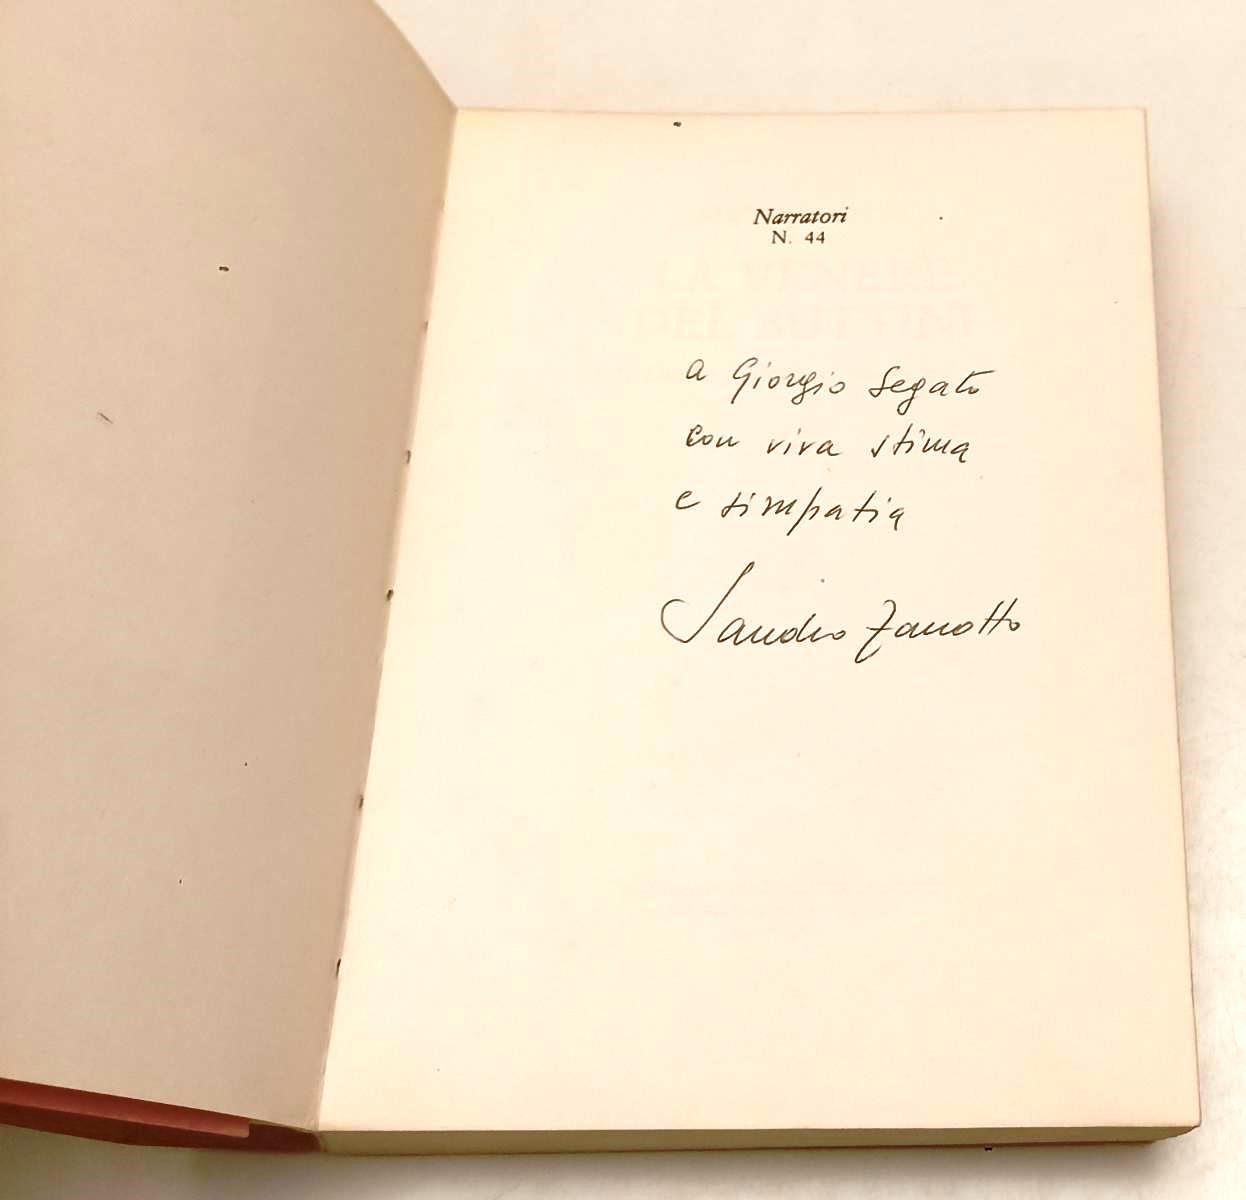 Narratori
N. 44
LA VENERE
DEI
a Giorgio Segato
con viva stima
e simpatia
Sandro Zanotto